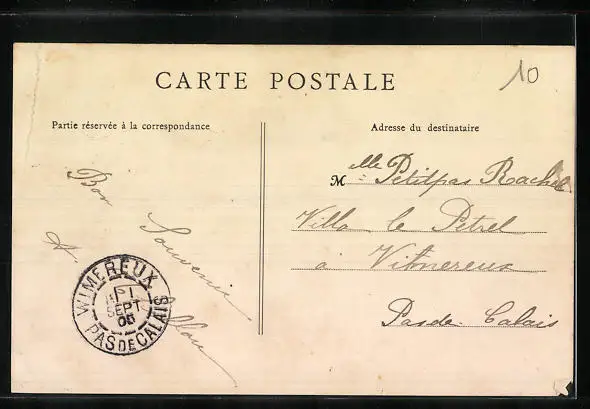 CARTE POSTALE
10
Partie réservée à la correspondance
Adresse du destinataire
Melle Petitpas Rachel
Villa le Pétrel
à Vimereux
Pas de Calais
Bon
Souvenir
A.
WIMEREUX
SEPT
PAS DE CALAIS